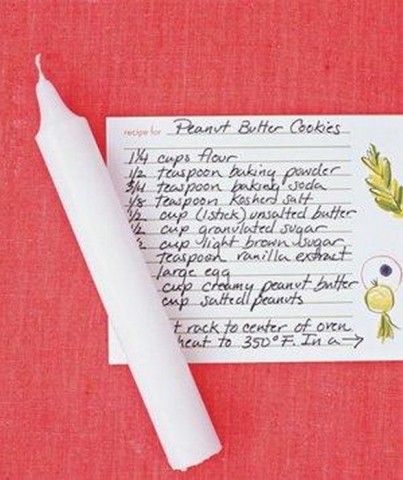 recipe for Peanut Butter Cookies
1 1/4 cups flour
1/2 teaspoon baking powder
3/4 teaspoon baking soda
1/8 teaspoon Kosher salt
1/2 cup (1stick) unsalted butter
1/2 cup granulated sugar
1/2 cup light brown sugar
teaspoon vanilla extract
large egg
cup creamy peanut butter
cup salted peanuts
rack to center of oven.
to 350°F. In a →